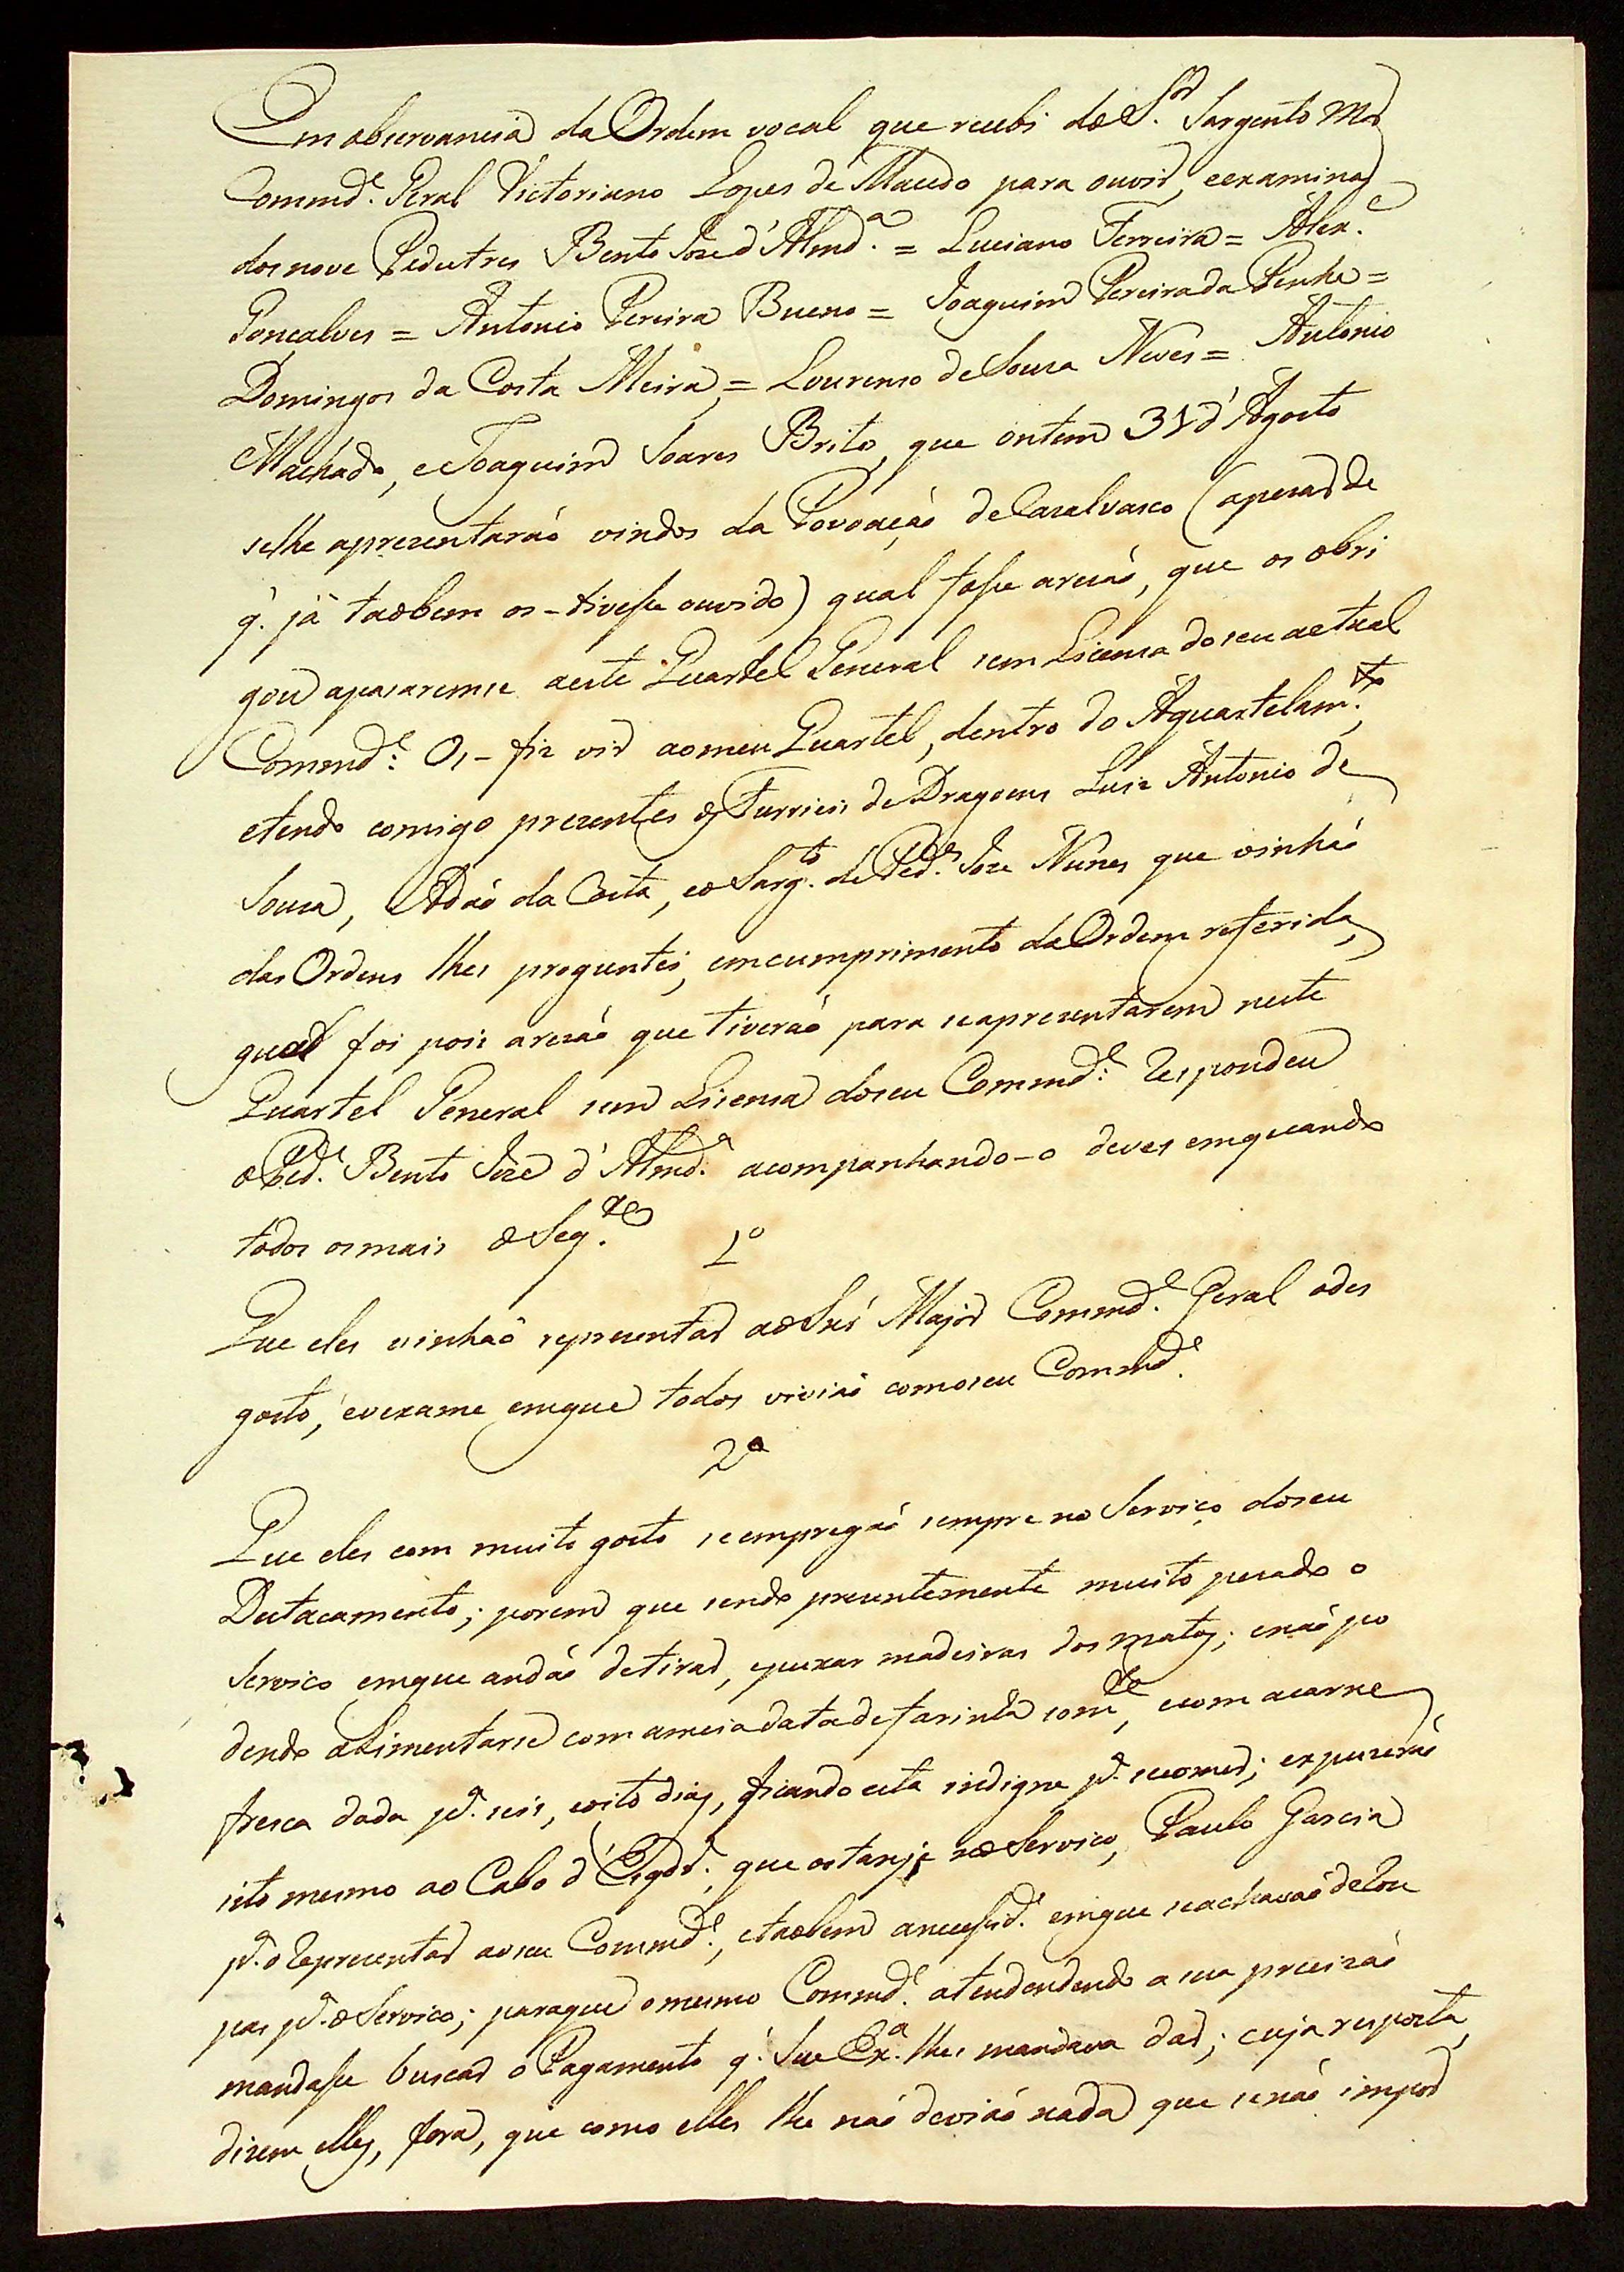 Em observancia da Ordem vocal que recebi do Sr. Sargento Mor
Commde. Geral Victoriano Lopes de Macedo para ouvir, e examinar
dos nove Pedestres Bento Joze d'Almda. = Luciano Ferreira = Alexe.
Goncalves = Antonio Pereira Bueno = Joaquim Pereira da Penha =
Domingos da Costa Meira = Lourenso de Souza Neves = Antonio
Machado, e Joaquim Soares Brito, que ontem 31 d'Agosto
selhe aprezentaraó vindos da Povoaçaó de Cazalvasco (apezar de
q. já taobem os-tivese ouvido) qual fose arezaó, que os obri
gou apasaremse aeste Quartel General sem Licensa do seu actual
Commde. Os-fiz vir aomeu Quartel, dentro do Aquartelamto.,
etendo comigo prezentes os Furrieis de Dragoens Luiz Antonio de
Souza, Adaó da Costa, eo Sargto. de Pedes. Joze Nunes que vinhaó
das Ordens lhes preguntei, emcumprimento da Ordem referida,
qual foi pois arezaó que tiveraó para seaprezentarem neste
Quartel General sem Lisensa doseu Commde. Respondeu
o Pede. Bento Joze d'Almda. acompanhando-o devez emquando
todos osmais o Segte.
1º
Que eles vinhaó reprezentar ao Snr. Major Commde. Geral odes
gosto, evexame emque todos viviaó comoseu Commde.
2º
Que eles com muito gosto seempregaó sempre no Serviço doseu
Destacamento; porem que sendo prezentemente muito pezado o
Servico emque andaó detirar, epuxar madeiras dos matos; enaó po
dendo alimentarse com ameiadata defarinha somte, ecom acarne
fresca dada pr. seis, eoito dias, ficando esta indigna pa. secomer; expuzeraó
isto mesmo ao Cabo d'Esqdra., que ostanje no Servico, Paulo Garcia
pa. o Reprezentar aoseu Commde., etaobem aneceside. emque seachavaó de Rou
pas pa. o Servico; paraque omesmo Commde. atendendendo a sua precizaó
mandase buscar o Pagamento q. Sua Exa. lhes mandava dar; cuja resposta,
dizem elles, fora, que como elles lhe naó deviaó nada que senaó impor